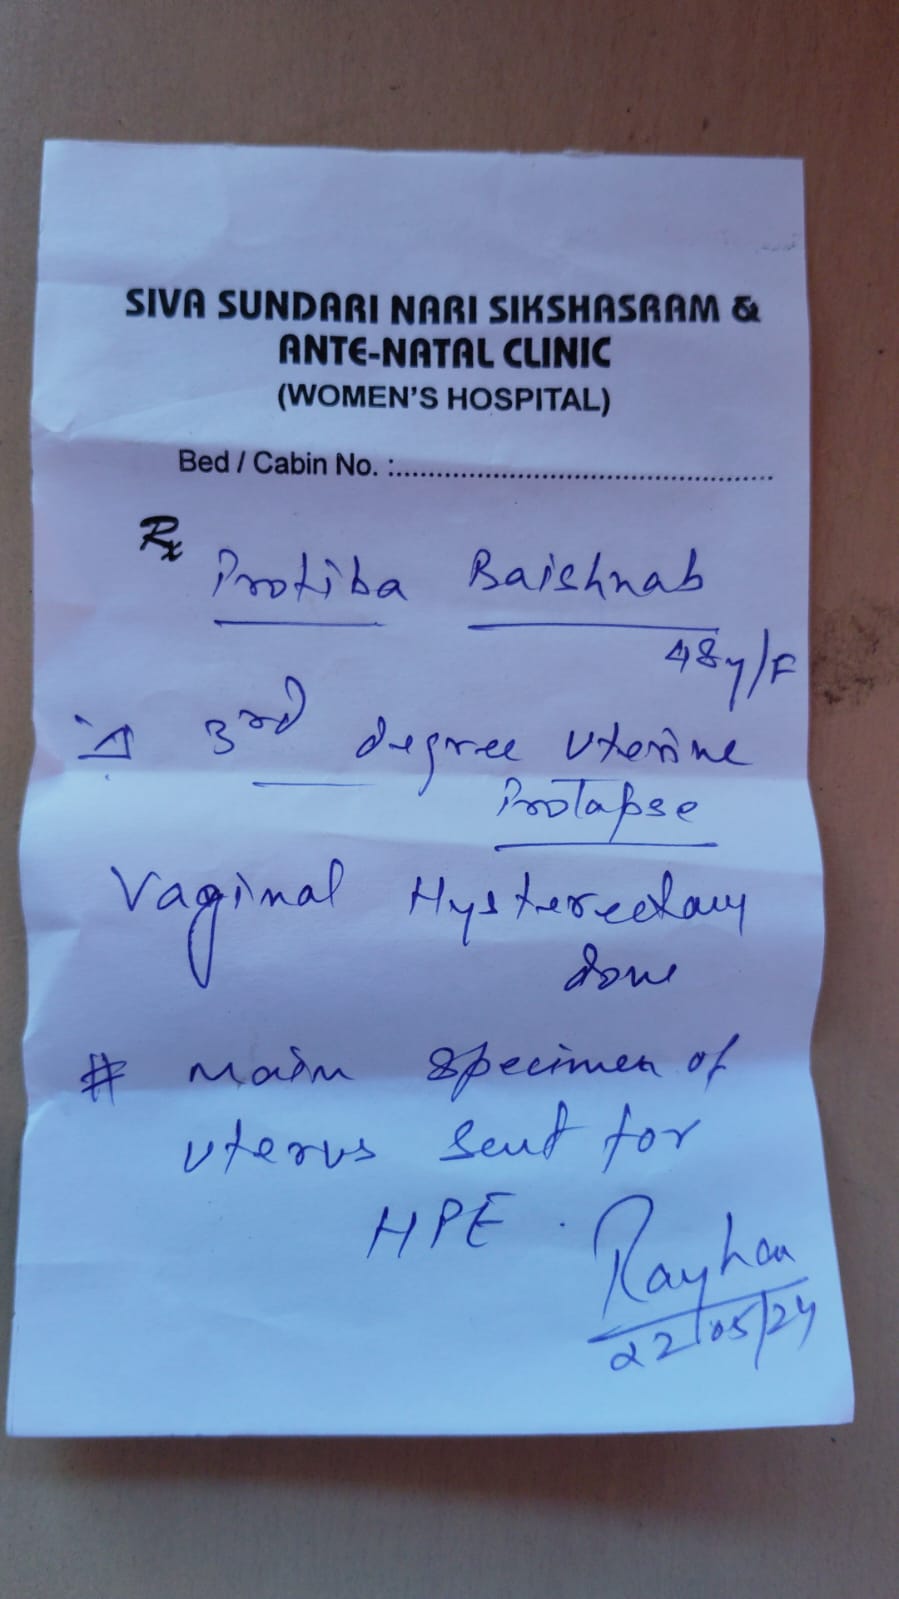 SIVA SUNDARI NARI SIKSHASRAM &
ANTE-NATAL CLINIC
(WOMEN'S HOSPITAL)
Bed / Cabin No. :
Rx
Protiba Baishnab
48y/F
3rd degree Uterine
Prolapse
Vaginal Hysterectomy
done
# Main specimen of
uterus sent for
HPE.
Rayhan
22/05/24